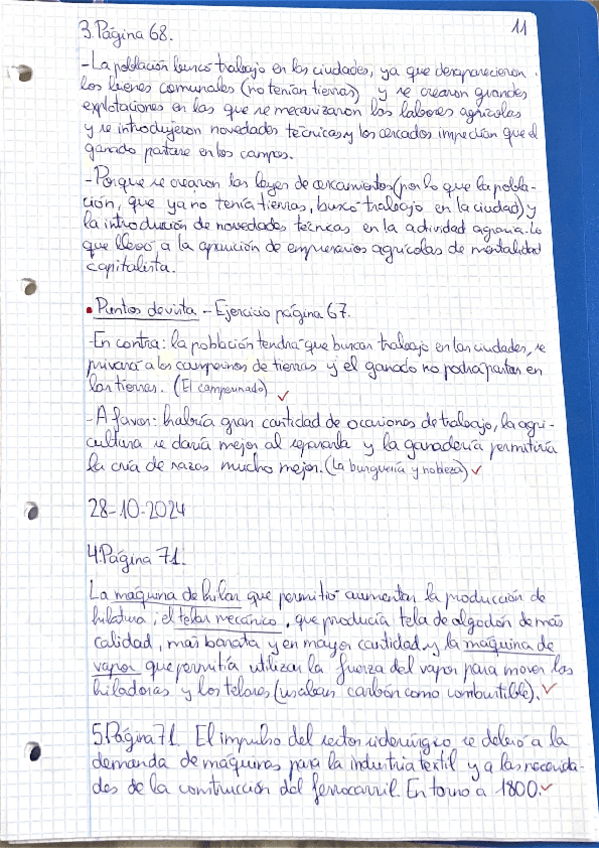 11
3.Página 68.
-La población buscó trabajo en las ciudades, ya que desaparecieron
los bienes comunales (no tenían tierras) y se crearon grandes
explotaciones en las que se mecanizaron las labores agrícolas
y se introdujeron novedades técnicas y los cercados impedían que el
ganado pastase en los campos.
-Porque se crearon las leyes de cercamientos (por lo que la pobla-
ción, que ya no tenía tierras, buscó trabajo en la ciudad) y
la introducción de novedades técnicas en la actividad agraria. Lo
que llevó a la aparición de empresarios agrícolas de mentalidad
capitalista.
• Puntos de vista - Ejercicio página 67.
-En contra: la población tendrá que buscar trabajo en las ciudades, se
privará a los campesinos de tierras y el ganado no podrá pastar en
las tierras. (El campesinado) ✓
-A favor: habría gran cantidad de ocasiones de trabajo, la agri-
cultura se daría mejor al separarla y la ganadería permitiría
la cría de razas mucho mejor. (La burguesía y nobleza) ✓
28-10-2024
4.Página 71.
La máquina de hilar que permitió aumentar la producción de
hilatura; el telar mecánico, que producía tela de algodón de más
calidad, más barata y en mayor cantidad y la máquina de
vapor que permitía utilizar la fuerza del vapor para mover las
hiladoras y los telares (usaban carbón como combustible). ✓
5.Página 71. El impulso del sector siderúrgico se debió a la
demanda de máquinas para la industria textil y a las necesida-
des de la construcción del ferrocarril. En torno a 1800. ✓